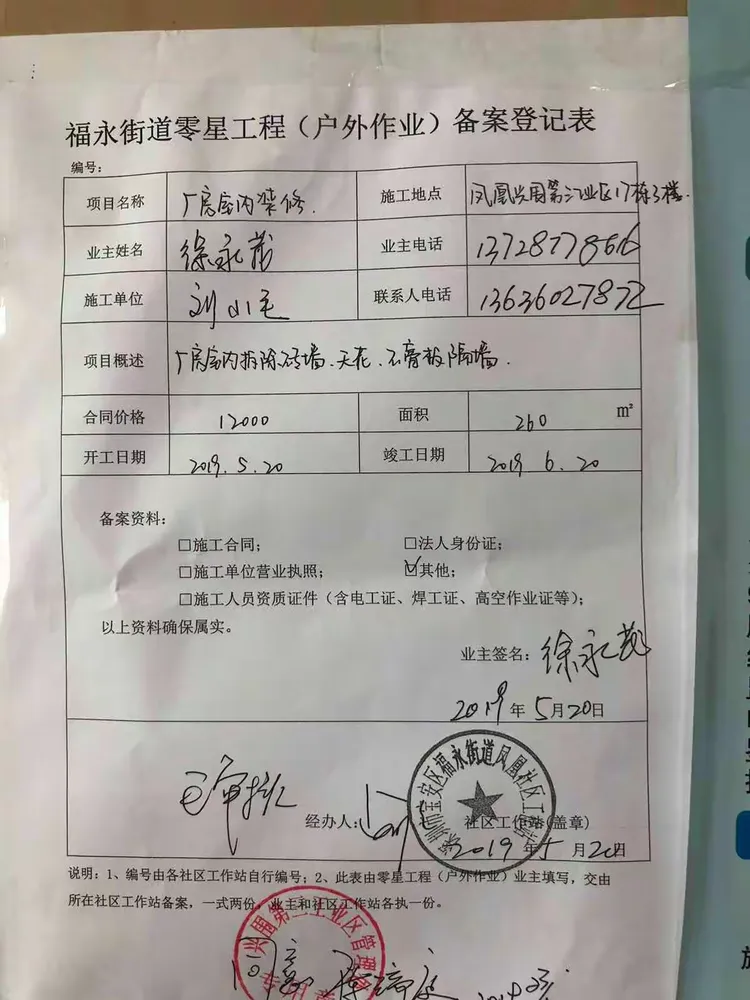 福永街道零星工程（户外作业）备案登记表
编号：
项目名称 厂房室内装修. 施工地点 凤凰兴围第三工业区17栋3楼.
业主姓名 徐永茂 业主电话 13728778616
施工单位 刘小毛 联系人电话 13636027872
项目概述 厂房室内拆除砖墙.天花.石膏板隔墙.
合同价格 12000 面积 260 m²
开工日期 2019.5.20 竣工日期 2019 6.20
备案资料：
□施工合同； □法人身份证；
□施工单位营业执照； ☑其他；
□施工人员资质证件（含电工证、焊工证、高空作业证等）；
以上资料确保属实。
业主签名：徐永茂
2019 年 5月20日
深圳市宝安区福永街道凤凰社区工作站
经办人：
社区工作站(盖章)
2019 年5月20日
说明：1、编号由各社区工作站自行编号；2、此表由零星工程（户外作业）业主填写，交由
所在社区工作站备案，一式两份，业主和社区工作站各执一份。
兴围第三工业区管理
同意